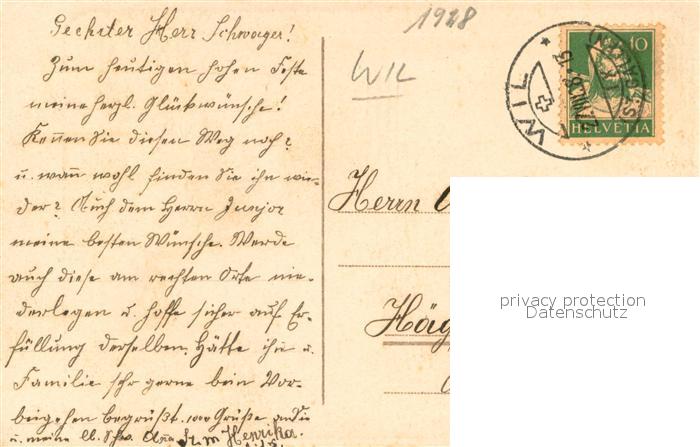 Geehrter Herr Schwager!
Zum heutigen hohen Feste
meine herzl. Glückwünsche!
Kennen Sie diesen Weg noch?
u. wann wohl finden Sie ihn wie-
der? Auch dem Herrn Junjor
meine besten Wünsche. Werde
auch diese am rechten Orte nie-
derlegen u. hoffe sicher auf Er-
füllung derselben. Hätte ihn u.
Familie sehr gerne beim Vor-
beigehen begrüßt. 1000 Grüße an Sie
u. meine lb. Henrika.
1928
WIL
WIL
10
HELVETIA
Herrn
Häg
privacy protection
Datenschutz